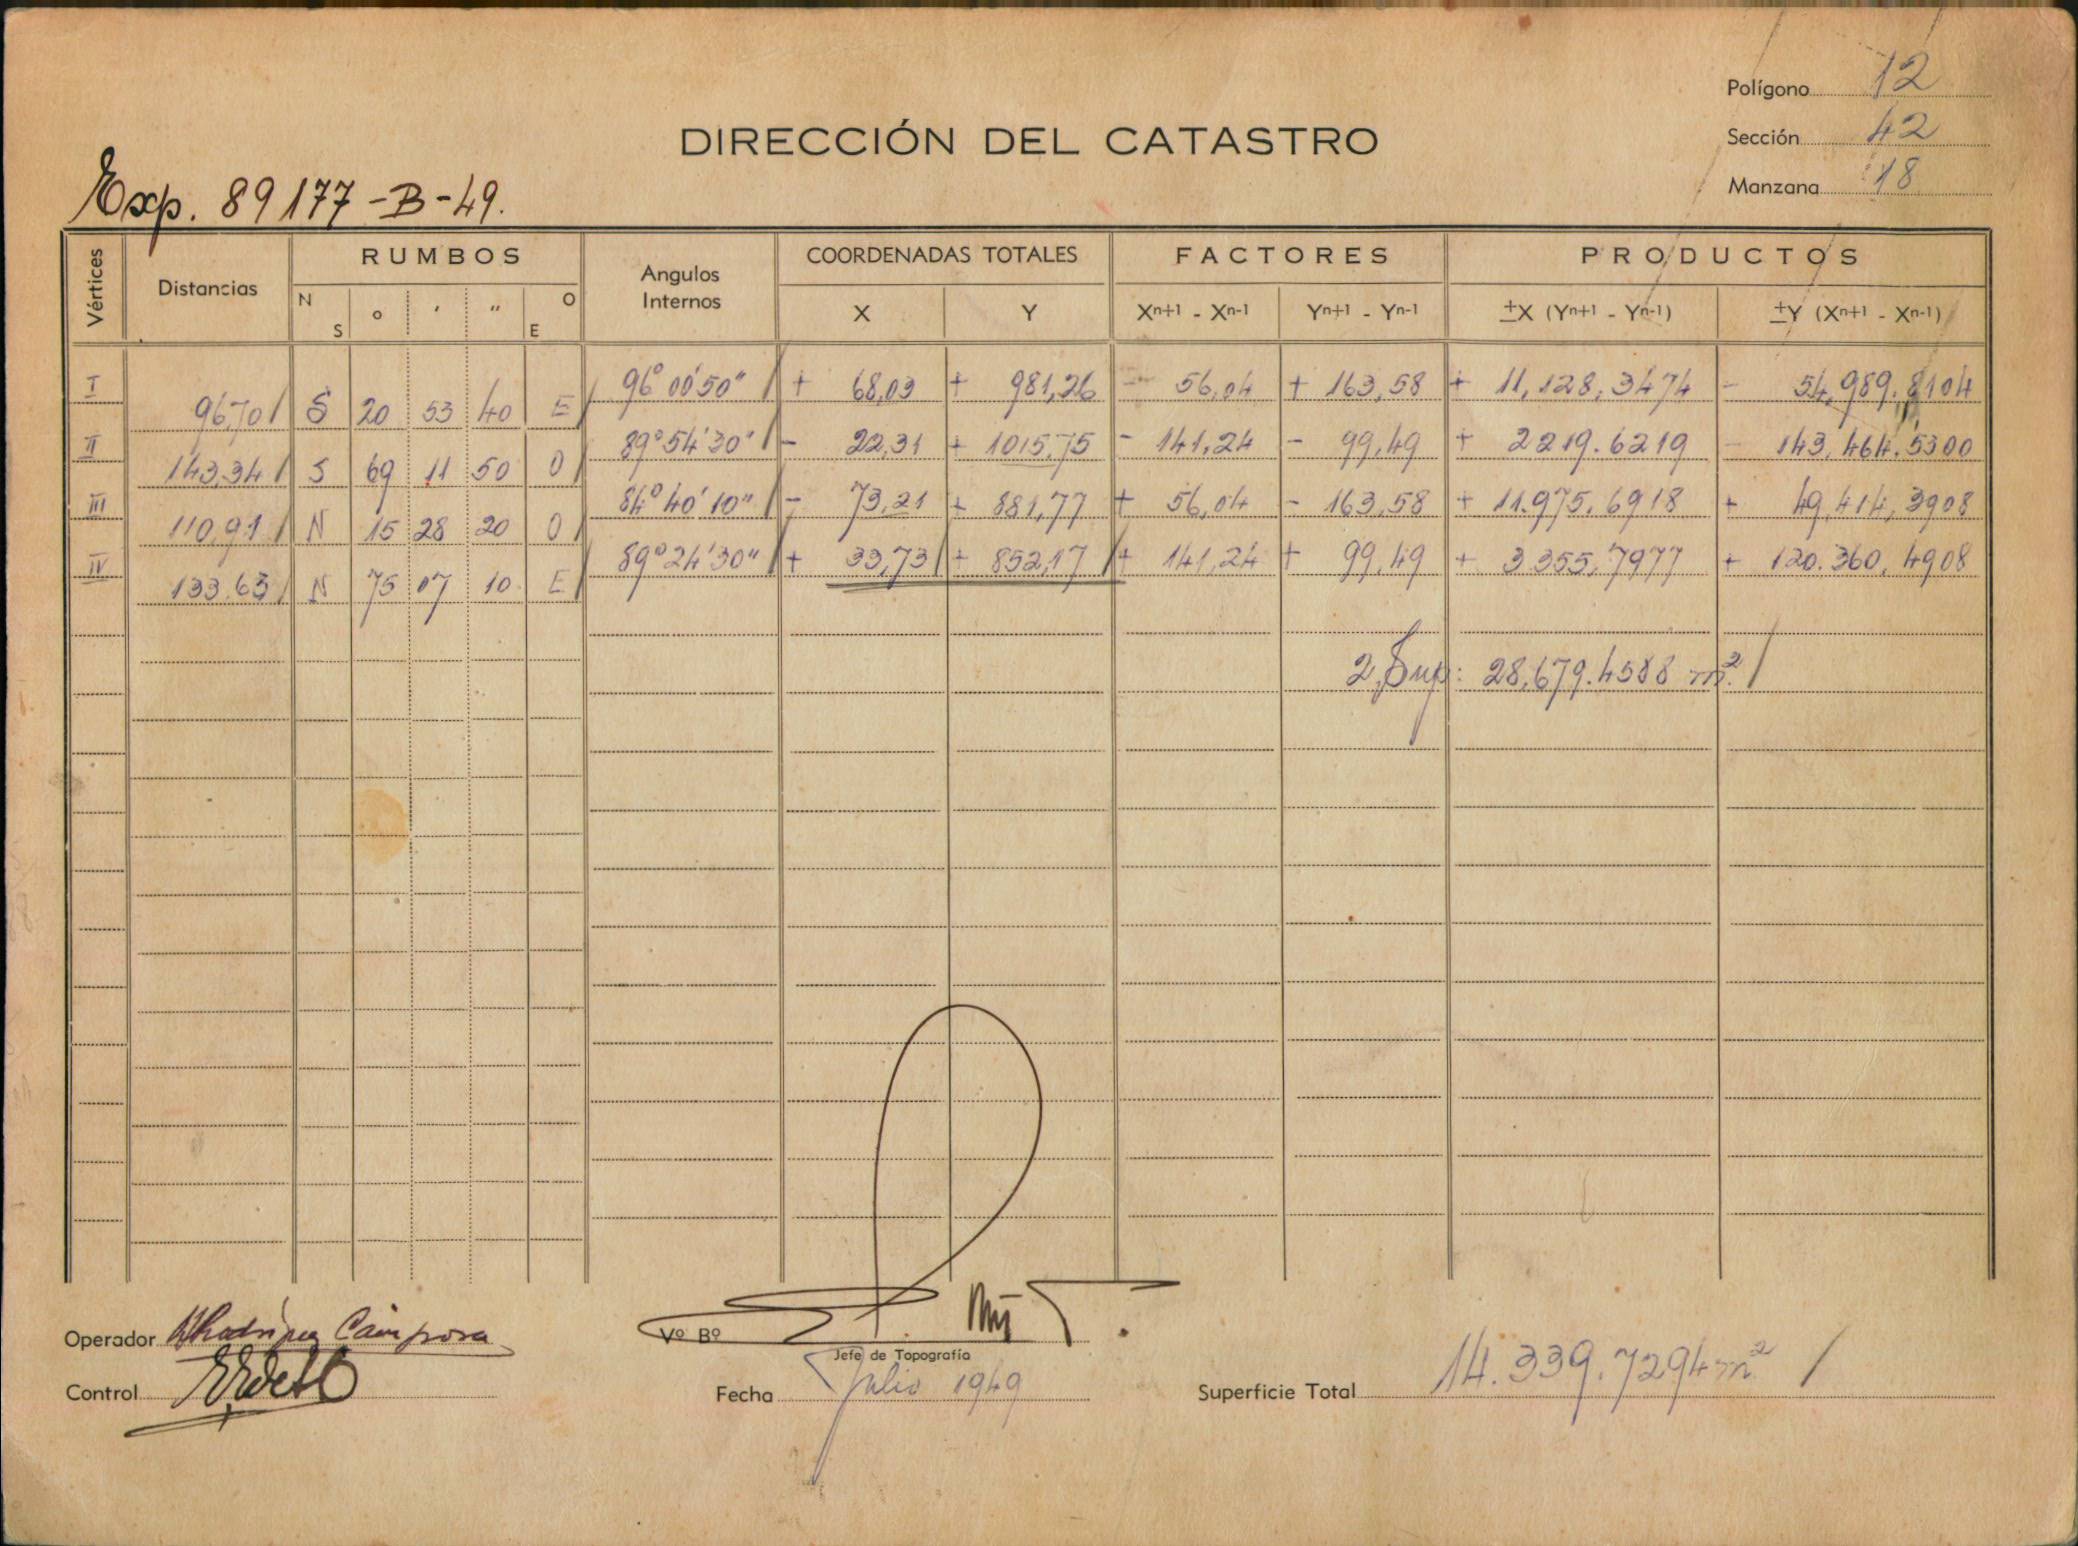 Polígono 12
DIRECCIÓN DEL CATASTRO
Sección 42
Manzana 18
Exp. 89177-B-49.
Vértices Distancias RUMBOS Angulos Internos COORDENADAS TOTALES FACTORES PRODUCTOS
N S ° ' " E O X Y Xn+1 - Xn-1 Yn+1 - Yn-1 ±X (Yn+1 - Yn-1) ±Y (Xn+1 - Xn-1)
I 96° 00' 50" + 68,03 + 981,26 - 56,04 + 163,58 + 11,128,3474 - 54,989.8104
96,70 S 20 53 40 E
II 89° 54' 30" - 22,31 + 1015,75 - 141,24 - 99,49 + 2219.6219 - 143,464.5300
143,34 S 69 11 50 O
III 84° 40' 10" - 73,21 + 881,77 + 56,04 - 163,58 + 11.975,6918 + 49,414,3908
110,91 N 15 28 20 O
IV 89° 24' 30" + 33,73 + 852,17 + 141,24 + 99,49 + 3.355,7977 + 120.360,4908
133.63 N 75 07 10 E
2 Sup: 28,679.4588 m²
Operador
Vº Bº
Jefe de Topografía
Control
Fecha Julio 1949
Superficie Total 14.339.7294 m²